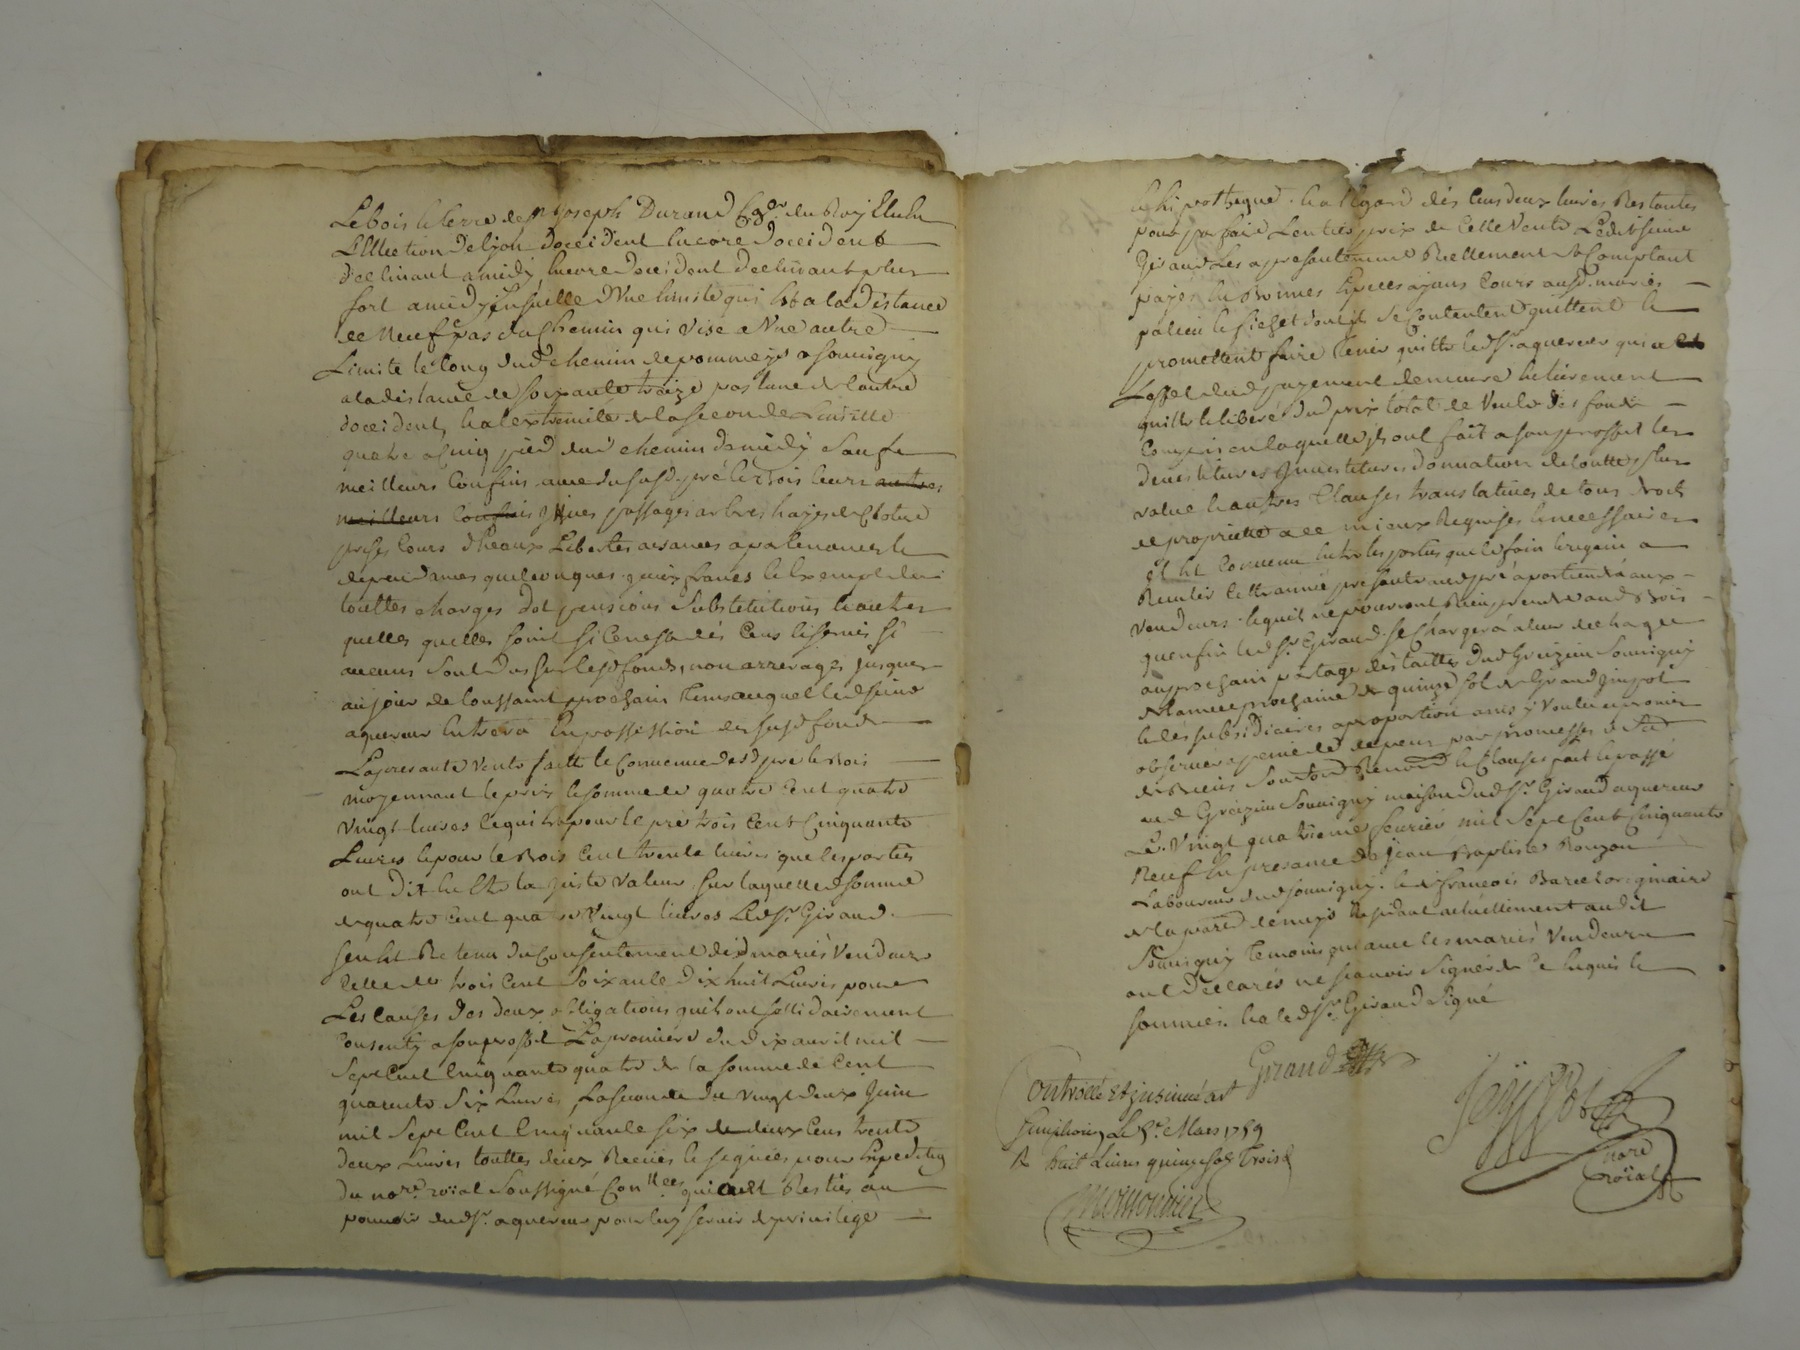 Le bois et terre de Mr Joseph Durand Cogr du Roy Elu En
L'Ellection De Lyon d'occident Encore d'occident
declinant a midy, Encore d'occident declinant plus
fort a midy Ensuitte d'Une limite qui Est a la distance
de Neuf pas du Chemin qui Vise a Une autre
Limite le long dud chemin de pommeys a Souvigny
a la distance de soixante treize pas l'une de l'autre
d'occident, Et a l'extremité de la seconde Limitte
quatre a cinq pied dud chemin de midy Sauf
meilleurs Confins avec du susd. pré Et Bois leurs autres
meilleurs Confins passages arbres hayes de Cloture
prises Cours d'heaux Libertés aisances apartenances et
dependances quelconques quis francs Et Exempts de
touttes charges dot pensions Substitutions Et autres
quelles quelles soint si ce n'est des Cens Et servis si
aucuns sont dus sur lesd fonds, non arrerages jusques
au jour de toussaint prochain tems auquel led sieur
aquereur Entrera En possession des susd fonds
La presante Vente faitte Et Convenue desd pré Et Bois
moyennant le prix Et somme de quatre Cent quatre
Vingt livres scavoir pour le pré trois Cent Cinquante
Livres Et pour le Bois Cent trente livres que les parties
ont dit En Etre la juste Valeur, sur laquelle d somme
de quatre Cent quatre Vingt livres Led Sr. Giraud
s'en Est Retenu du Consentement desd mariés Vendeurs
Celle de trois Cent Soixante Dix huit Livres pour
Les Causes des deux obligations quils ont sollidairement
Consenty a son proffit La premiere du dix avril mil
Sept Cent Cinquante quatre de la somme de Cent
quarente Six Livres, La seconde du Vingt deux Juin
mil Sept Cent Cinquante six de deux Cens trente
deux Livres touttes deux Recues Et signées pour Expedition
du nore. roial Soussigné Conllées qui ont Resties au
pouvoir dud Sr. aquereur pour luy servir de privilege
Et hipotheque. Et a l'Egard des Cens deux livres Restantes
pour parfaire L'entier prix de Cette Vente Led. sieur
Giraud Les a presentement Réellement Et Comptant
payés En Bonnes Especes ayans Cours ausd. mariés
promettent faire tenir quitte led Sr. aquereur qui a
L'effet dud payement demeure Entierement
quitte Et liberé dud prix total de Vente des fonds
Compris en laquelle ils ont fait a son proffit les
Devestitures Investitures donnation de toutte plus
value Et autres Clauses translatives de tous droit
de proprietté a ce mieux Requises Et necessaires
Et Est Convenu Entre les parties que le foin Et regain a
Receuilir Cette année presente aud pré apartiendra aux
Vendeurs. Et quil ne pouront Rien prendre aud Bois
qu'enfin led Sr. Giraud se Chargera a leur decharge
au prochain partage des tailles dud Grezieu Souvigny
de l'année prochaine de quinze sol de Grand Impot
Et des subsidiaires a proportion ainsy Voulu Et promis
observer a peine de depens par promesses
Biens Renond Et Clauses fait Et passé
aud Grezieu Souvigny maison dud Sr. Giraud aquereur
Le Vingt quatrieme fevrier mil Sept Cent Cinquante
Neuf En presance de Jean Baptiste Bonzon
Laboureur dud Souvigny. Et de francois Baret originaire
de la parr de meys Residant actuellement audit
Souvigny temoins qui avec les mariés Vendeurs
ont Declarés ne scavoir Signér de Ce Enquis Et
sommés. Et a led Sr. Giraud Signé
Giraud
Controllé Et Insinué a St
Simphorien Le 5e. Mars 1759
R huit Livres quinze sols Trois d
nore
roial